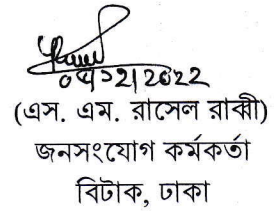 ০৭/১২/২০২২
(এস. এম. রাসেল রাব্বী)
জনসংযোগ কর্মকর্তা
বিটাক, ঢাকা